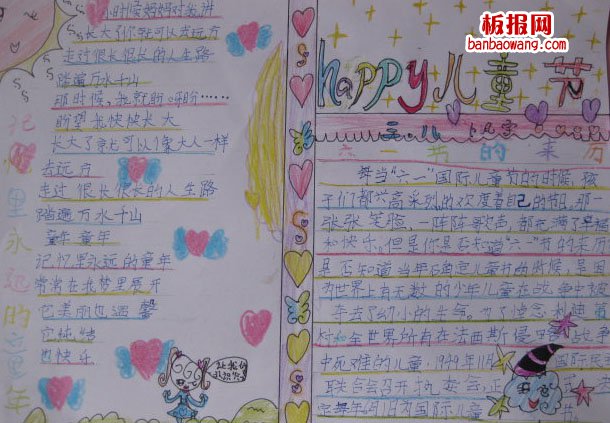 板报网
banbaowang.com
小时候妈妈对我讲
长大了你就可以去远方
走过很长很长的人生路
踏遍万水千山
那时候,我就盼呀盼……
盼望我快快长大
长大了就可以像大人一样
去远方
走过很长很长的人生路
踏遍万水千山
童年 童年
记忆里永远的童年
常常在我梦里展开
它美丽也温馨
它纯纯
也快乐
记忆里永远的童年
happy儿童节
六一节的来历
每当“六一”国际儿童节的时候,孩
子们都兴高采烈的欢度着自己的节日,那一
张张笑脸,一阵阵歌声,都充满了幸福
和快乐。但是你是否知道“六一”节的来历
是否知道当年在确定儿童节的时候,是因
为世界上有无数的少年儿童在战争中被
夺去了幼小的生命。为了悼念
和全世界所有在法西斯侵
中死难的儿童,1949年11月 国际民
联合会召开执委会,正
定每年6月1日为国际儿童